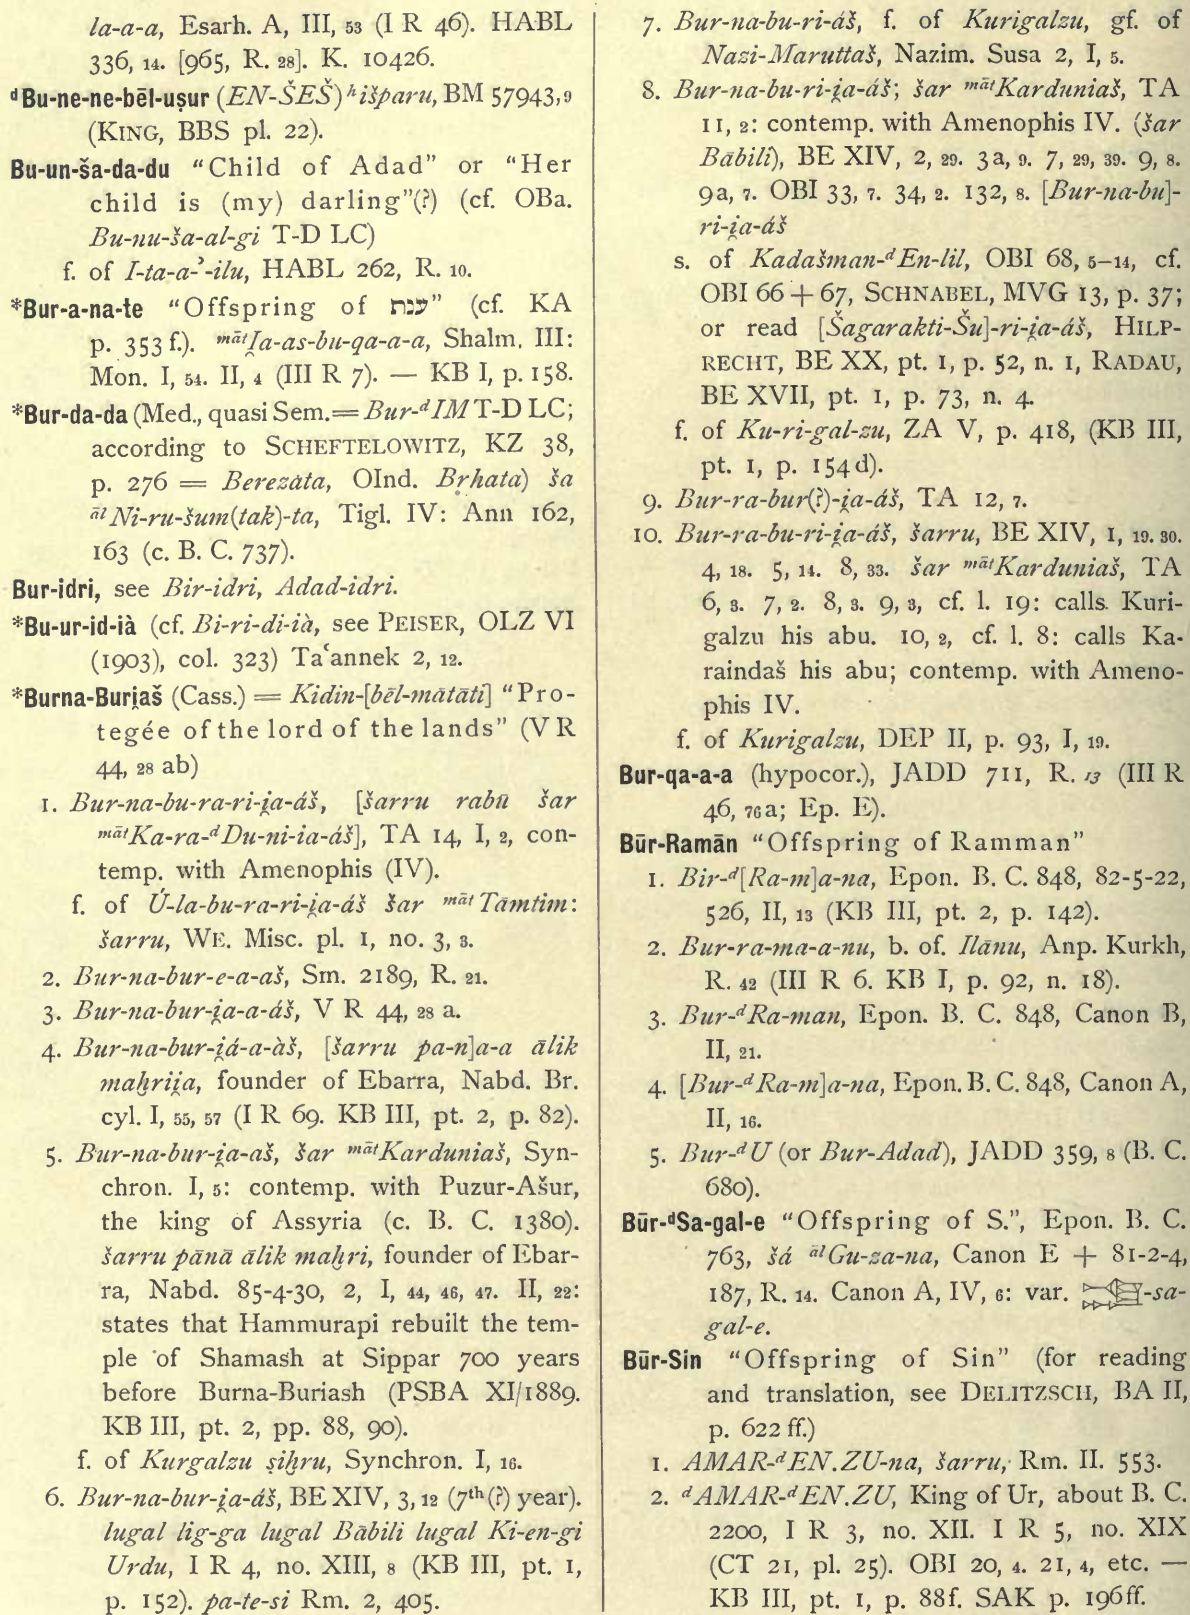 la-a-a, Esarh. A, III, 53 (I R 46). HABL
336, 14. [965, R. 28]. K. 10426.
ᵈBu-ne-ne-bēl-uṣur (EN-ŠEŠ) ʰišparu, BM 57943, 9
(KING, BBS pl. 22).
Bu-un-ša-da-du “Child of Adad” or “Her
child is (my) darling”(?) (cf. OBa.
Bu-nu-ša-al-gi T-D LC)
f. of I-ta-a-ʾ-ilu, HABL 262, R. 10.
*Bur-a-na-te “Offspring of ענת” (cf. KA
p. 353 f.). ᵐᵃ̄ᵗI̯a-as-bu-qa-a-a, Shalm. III:
Mon. I, 54. II, 4 (III R 7). — KB I, p. 158.
*Bur-da-da (Med., quasi Sem. = Bur-ᵈIM T-D LC;
according to SCHEFTELOWITZ, KZ 38,
p. 276 = Berezata, OInd. Bṛhata) ša
ᵃ̄ˡNi-ru-šum(tak)-ta, Tigl. IV: Ann 162,
163 (c. B. C. 737).
Bur-idri, see Bir-idri, Adad-idri.
*Bu-ur-id-ià (cf. Bi-ri-di-ià, see PEISER, OLZ VI
(1903), col. 323) Taʿannek 2, 12.
*Burna-Buri̯aš (Cass.) = Kidin-[bēl-mātāti] “Pro-
tegée of the lord of the lands” (V R
44, 28 ab)
1. Bur-na-bu-ra-ri-i̯a-áš, [šarru rabū šar
ᵐᵃ̄ᵗKa-ra-ᵈDu-ni-ia-áš], TA 14, I, 2, con-
temp. with Amenophis (IV).
f. of Ú-la-bu-ra-ri-i̯a-áš šar ᵐᵃ̄ᵗTāmtim:
šarru, WE. Misc. pl. 1, no. 3, 3.
2. Bur-na-bur-e-a-aš, Sm. 2189, R. 21.
3. Bur-na-bur-i̯a-a-áš, V R 44, 28 a.
4. Bur-na-bur-i̯á-a-àš, [šarru pa-n]a-a ālik
maḫrii̯a, founder of Ebarra, Nabd. Br.
cyl. I, 55, 57 (I R 69. KB III, pt. 2, p. 82).
5. Bur-na-bur-i̯a-aš, šar ᵐᵃ̄ᵗKarduniaš, Syn-
chron. I, 5: contemp. with Puzur-Ašur,
the king of Assyria (c. B. C. 1380).
šarru pānā ālik maḫri, founder of Ebar-
ra, Nabd. 85-4-30, 2, I, 44, 46, 47. II, 22:
states that Hammurapi rebuilt the tem-
ple of Shamash at Sippar 700 years
before Burna-Buriash (PSBA XI/1889.
KB III, pt. 2, pp. 88, 90).
f. of Kurgalzu ṣiḫru, Synchron. I, 16.
6. Bur-na-bur-i̯a-áš, BE XIV, 3, 12 (7ᵗʰ(?) year).
lugal lig-ga lugal Bābili lugal Ki-en-gi
Urdu, I R 4, no. XIII, 8 (KB III, pt. 1,
p. 152). pa-te-si Rm. 2, 405.
7. Bur-na-bu-ri-áš, f. of Kurigalzu, gf. of
Nazi-Maruttaš, Nazim. Susa 2, I, 5.
8. Bur-na-bu-ri-i̯a-áš; šar ᵐᵃ̄ᵗKarduniaš, TA
11, 2: contemp. with Amenophis IV. (šar
Bābili), BE XIV, 2, 29. 3a, 9. 7, 29, 39. 9, 8.
9a, 7. OBI 33, 7. 34, 2. 132, 8. [Bur-na-bu]-
ri-i̯a-áš
s. of Kadašman-ᵈEn-lil, OBI 68, 5–14, cf.
OBI 66 + 67, SCHNABEL, MVG 13, p. 37;
or read [Šagarakti-Šu]-ri-i̯a-áš, HILP-
RECHT, BE XX, pt. 1, p. 52, n. 1, RADAU,
BE XVII, pt. 1, p. 73, n. 4.
f. of Ku-ri-gal-zu, ZA V, p. 418, (KB III,
pt. 1, p. 154d).
9. Bur-ra-bur(?)-i̯a-áš, TA 12, 7.
10. Bur-ra-bu-ri-i̯a-áš, šarru, BE XIV, 1, 19. 30.
4, 18. 5, 14. 8, 33. šar ᵐᵃ̄ᵗKarduniaš, TA
6, 3. 7, 2. 8, 3. 9, 3, cf. l. 19: calls Kuri-
galzu his abu. 10, 2, cf. l. 8: calls Ka-
raindaš his abu; contemp. with Ameno-
phis IV.
f. of Kurigalzu, DEP II, p. 93, I, 19.
Bur-qa-a-a (hypocor.), JADD 711, R. 13 (III R
46, 76a; Ep. E).
Būr-Ramān “Offspring of Ramman”
1. Bir-ᵈ[Ra-m]a-na, Epon. B. C. 848, 82-5-22,
526, II, 13 (KB III, pt. 2, p. 142).
2. Bur-ra-ma-a-nu, b. of. Ilānu, Anp. Kurkh,
R. 42 (III R 6. KB I, p. 92, n. 18).
3. Bur-ᵈRa-man, Epon. B. C. 848, Canon B,
II, 21.
4. [Bur-ᵈRa-m]a-na, Epon. B. C. 848, Canon A,
II, 16.
5. Bur-ᵈU (or Bur-Adad), JADD 359, 8 (B. C.
680).
Būr-ᵈSa-gal-e “Offspring of S.”, Epon. B. C.
763, šá ᵃ̄ˡGu-za-na, Canon E + 81-2-4,
187, R. 14. Canon A, IV, 6: var. -sa-
gal-e.
Būr-Sin “Offspring of Sin” (for reading
and translation, see DELITZSCH, BA II,
p. 622 ff.)
1. AMAR-ᵈEN.ZU-na, šarru, Rm. II. 553.
2. ᵈAMAR-ᵈEN.ZU, King of Ur, about B. C.
2200, I R 3, no. XII. I R 5, no. XIX
(CT 21, pl. 25). OBI 20, 4. 21, 4, etc. —
KB III, pt. 1, p. 88f. SAK p. 196ff.